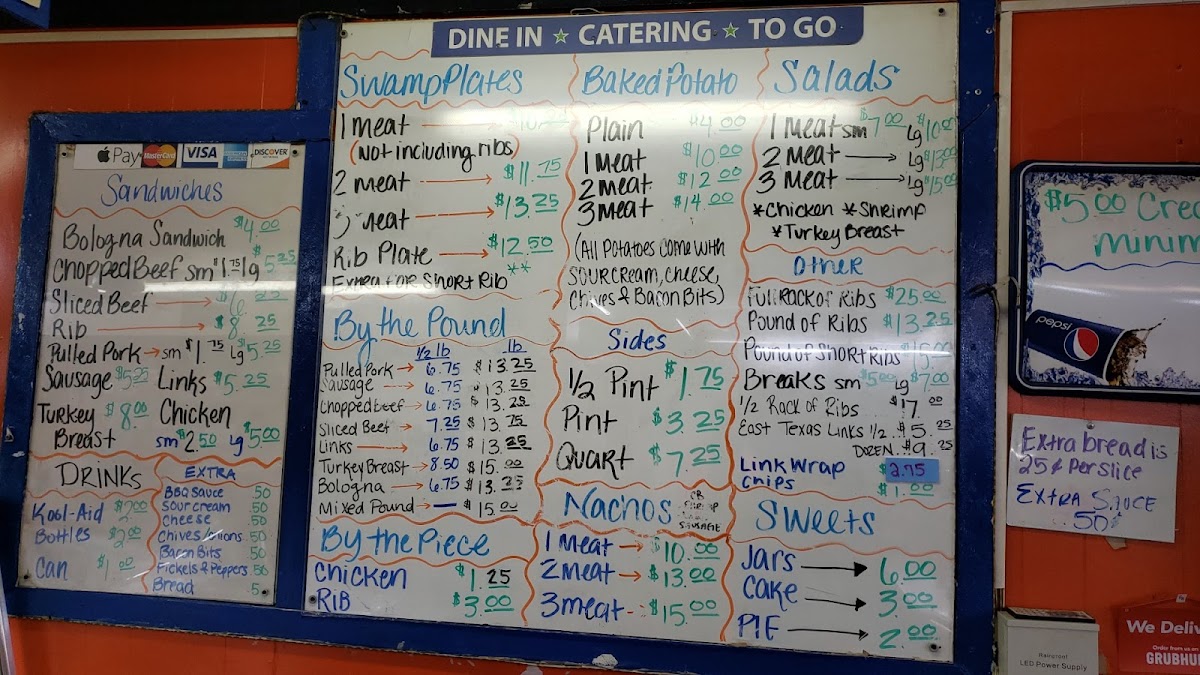 DINE IN ☆ CATERING ☆ TO GO
Pay MasterCard VISA AMERICAN EXPRESS DISCOVER
Sandwiches
Bologna Sandwich $4.00
Chopped Beef sm $1.75 lg 5.25
Sliced Beef
Rib → $8.25
Pulled Pork → sm $1.75 Lg $5.25
Sausage $5.25 Links $5.25
Turkey Breast $8.00
Chicken sm $2.50 Lg $5.00
DRINKS
Kool-Aid $2.00
Bottles $2.00
Can $1.00
EXTRA
BBQ Sauce .50
Sour cream .50
Cheese .50
Chives/Onions .50
Bacon Bits .50
Pickels & Peppers .50
Bread
Swamp Plates
1 meat
(Not including ribs)
2 meat → $11.75
3 meat → $13.25
Rib Plate → $12.50
Extra for Short Rib **
By the Pound
1/2 lb lb
Pulled Pork → 6.75 $13.25
Sausage → 6.75 $13.25
Chopped beef → 6.75 $13.25
Sliced Beef → 7.25 $13.75
Links → 6.75 $13.25
Turkey Breast → 8.50 $15.00
Bologna → 6.75 $13.25
Mixed Pound — $15.00
By the Piece
Chicken $1.25
RIB $3.00
Baked Potato
Plain $4.00
1 Meat $10.00
2 meat $12.00
3 meat $14.00
(All Potatoes come with
sour cream, cheese,
Chives & Bacon Bits)
Sides
1/2 Pint $1.75
Pint $3.25
Quart $7.25
Nachos
SAUSAGE
1 Meat → $10.00
2 meat → $13.00
3 meat $15.00
Salads
1 Meat sm $7.00 Lg $10.00
2 Meat → Lg $13.00
3 Meat → Lg $15.00
*Chicken *Shrimp
*Turkey Breast
Other
Full Rack of Ribs $25.00
Pound of Ribs $13.25
Pound of Short Ribs
Breaks sm $5.00 Lg $7.00
1/2 Rack of Ribs $17.00
East Texas Links 1/2 $5.25
Dozen $9.25
Link Wrap $2.75
Chips $1.00
Sweets
Jars → 6.00
Cake → 3.00
PIE → 2.00
$5.00
Minim
pepsi
Extra bread is
25¢ Per Slice
Extra Sauce
50¢
Rainproof
LED Power Supply
We Deliv
Order from us on
GRUBHU